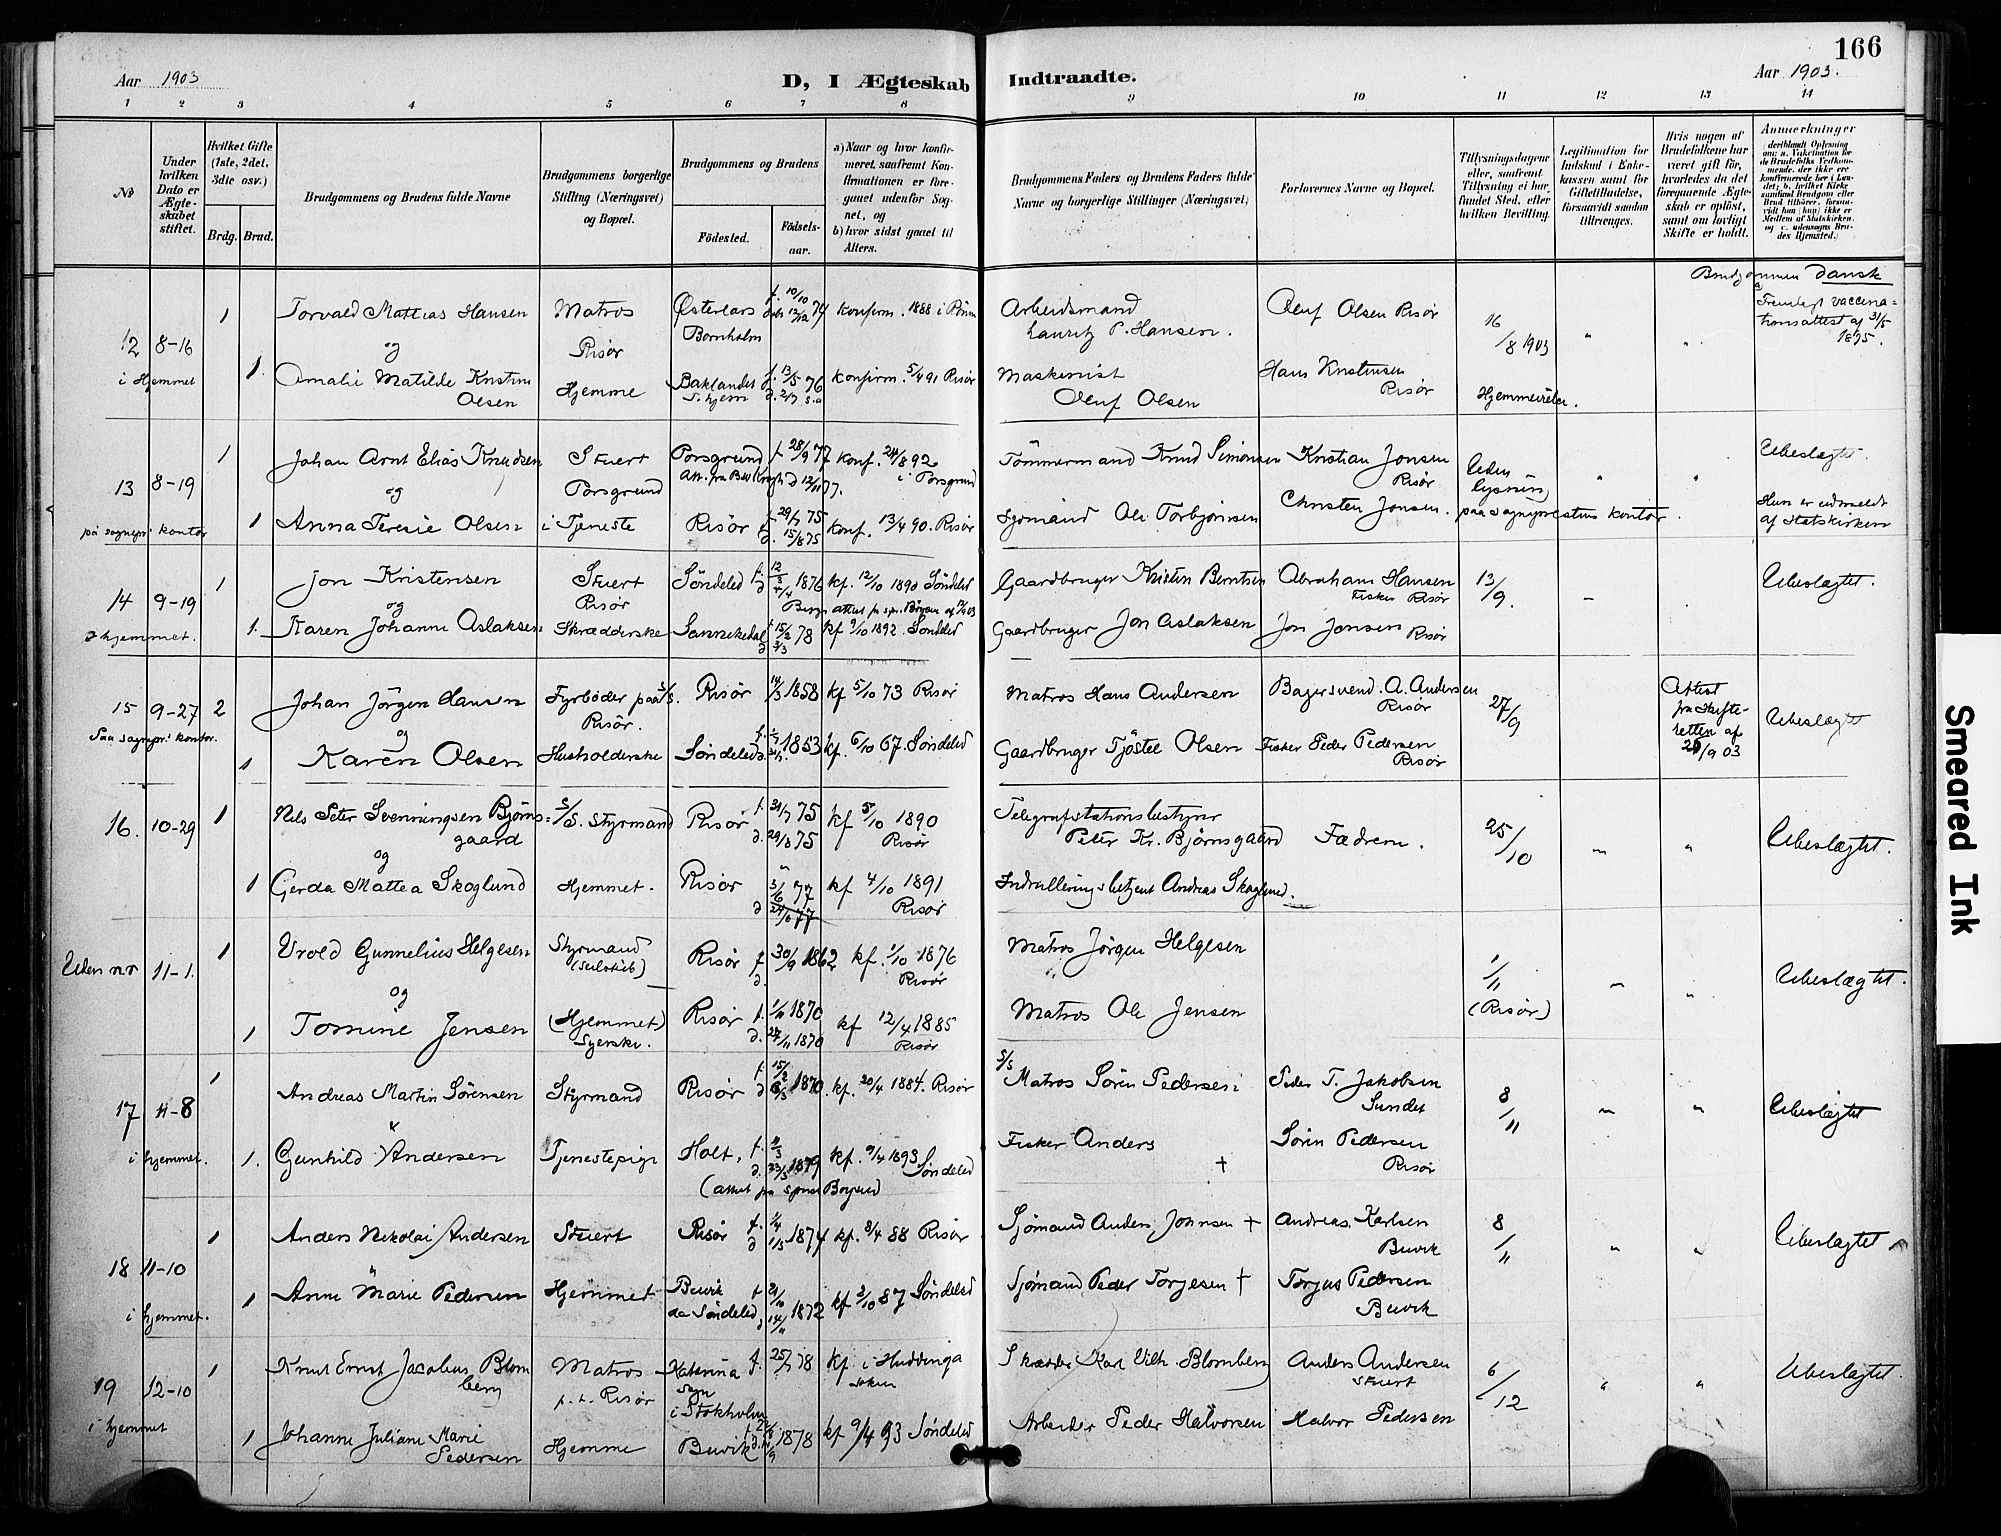 166
Aar 1903
D, I Ægteskab
Indtraadte.
Aar 1903.
1 2 3 4 5 6 7 8 9 10 11 12 13 14
No
Under hvilken Dato er Ægteskabet stiftet.
Hvilket Gifte (1ste, 2det, 3die osv.)
Brdg. Brud.
Brudgommens og Brudens fulde Navne
Brudgommens borgerlige Stilling (Næringsvei) og Bopæl.
Brudgommens og Brudens
Fødested.
Fødselsaar.
a) Naar og hvor konfirmeret, saafremt Konfirmationen er foregaaet udenfor Sognet, og
b) hvor sidst gaaet til Alters.
Brudgommens Faders og Brudens Faders fulde Navne og borgerlige Stillinger (Næringsvei)
Forlovernes Navne og Bopæl.
Tillysningsdagene eller, saafremt Tillysning ei har fundet Sted, efter hvilken Bevilling.
Legitimation for Indskud i Enkekassen samt for Giftetilladelse, forsaavidt saadan tiltrænges.
Hvis nogen af Brudefolkene har været gift før, hvorledes da det foregaaende Ægteskab er opløst, samt om lovligt Skifte er holdt.
Anmærkninger
(deriblandt Oplysning om: a. Vakcination for de Brudefolks Vedkommende, der ikke ere konfirmerede her i Landet; b. hvilket Kirkesamfund Brudgom eller Brud tilhører, forsaavidt han (hun) ikke er Medlem af Statskirken og c. udensogns Brudes Hjemsted.)
Brudgommen dansk
12 8-16 1 Torvald Mattias Hansen Matros Østerlars f. 10/10 74 konfirm. 1888 i Rønne Arbeidsmand Oluf Olsen Risør 16 Fremlagt vaccina-
og Risør Bornholm Lauritz P. Hansen. /8 1903 tionsattest af 31/5 1875.
i Hjemmet 1. Amalie Matilde Kristine Hjemme Baklandet f. 13/5 76 konfirm. 5/4 91 Risør Maskenist Hans Kristensen
Olsen Oluf Olsen Risør
13 8-19 1 Johan Arnt Elias Knudsen Stuert Porsgrund f 28/9 77 konf. 24/8 92 Tömmermand Knud Simonsen Kristian Jonsen Uden Ubeslægtet.
og Porsgrund i Porsgrund Risør lysning
på sognepr. kontor 1 Anna Teresie Olsen i Tjeneste Risør f 29/7 75 konf. 13/4 90. Risør Sjømand Ole Torbjörnsen Christen Jonsen. paa sogneprestens kontor. Hun er udmeldt
d. 15/8 75 af Statskirken
14 9-19 1 Jon Kristensen Stuert Söndeled 1876 kf. 12/10 1890 Söndeled Gaardbruger Kristen Berntsen Abraham Hansen 13 Ubeslægtet.
og Risör Fisker Risør /9.
I hjemmet. 1. Karen Johanne Aslaksen Skrædderske Sannekedal 15/2 78 kf 9/10 1892 Söndeled Gaardbruger Jon Aslaksen Jon Jonsen Risør
15 9-27 2 Johan Jörgen Hansen Fyrböder paa S/S. Risør 14/3 1858 kf 5/10 73 Risør Matros Hans Andersen Bagersvend. A. Andersen 27 Attest
og Risör. Risør /9 fra skifte- Ubeslægtet
Paa sognepr. kontor. 1 Karen Olsen Husholderske Söndeled 1853 kf. 6/10 67. Söndeled Gaardbruger Tjöstel Olsen Fisker Peder Pedersen retten af
Risør 21/9 03
16. 10-29 1 Nils Peter Svenningsen Björns= S/S. Styrmand Risør f. 31/7 75 kf 5/10 1890 Telegrafstationsbestyrer Fædrene. 25
gaard d. 29/8 75 Risør Peter Kr. Björnsgaard /10 Ubeslægtet.
og
1 Gerda Mattea Skoglund Hjemmet. Risör 3/6 77 kf 4/10 1891 Indrulleringsbetjent Andreas Skoglund.
Risør
Uden nr 11-1. 1 Vrold Gunnelius Helgesen Styrmand Risör f 30/9 1862 kf. 1/10 1876 Matros Jörgen Helgesen 1
og (Seilskib) d. Risør /11 Ubeslægtet.
1 Tomine Jensen (Hjemmet) Risör 1870 kf 12/4 1885 Matros Ole Jensen (Risør)
Syerske. d. 27/11 1870 Risør
17 11-8 1 Andreas Martin Sörensen Styrmand Risör f. 15/2 1870. kf. 20/4 1884. Risør S/S Matros Sören Pedersen Peder T. Jakobsen 8 Ubeslægtet
Sundet /11
i hjemmet. 1. Gunhild Andersen Tjenestepige Holt, f. 11/3 1879 kf. 9/4 1893 Söndeled Fisker Anders + Sören Pedersen
(attest fra spræst Borgund Risør
18 11-10 1 Anders Nikolai Andersen Stuert Risör f. 1/4 1874 kf. 8/4 88 Risør Sjömand Anders Johnsen + Andreas Karlsen 8 Ubeslægtet
Buvik /11
i hjemmet. 1 Anne Marie Pedersen Hjemmet Buvik f 21/10 1872 kf 2/10 87 Söndeled Sjömand Peder Torjesen + Torjus Pedersen
da Söndeled 14/11 Buvik
19 12-10 1 Knut Ernst Jacobius Blom Matros Katarina f. 25/7 78 kf i Huddinga Skrædder Karl Vilh. Blomberg Anders Andersen 6 Ubeslægtet.
berg p. t. Risör sogn soken Stuert /12
i hjemmet i Stokholm
1 Johanne Juliane Marie Hjemme Buvik 1878 kf 9/4 93 Söndeled Arbeider Peder Halvorsen Halvor Pedersen
Pedersen
Smeared Ink